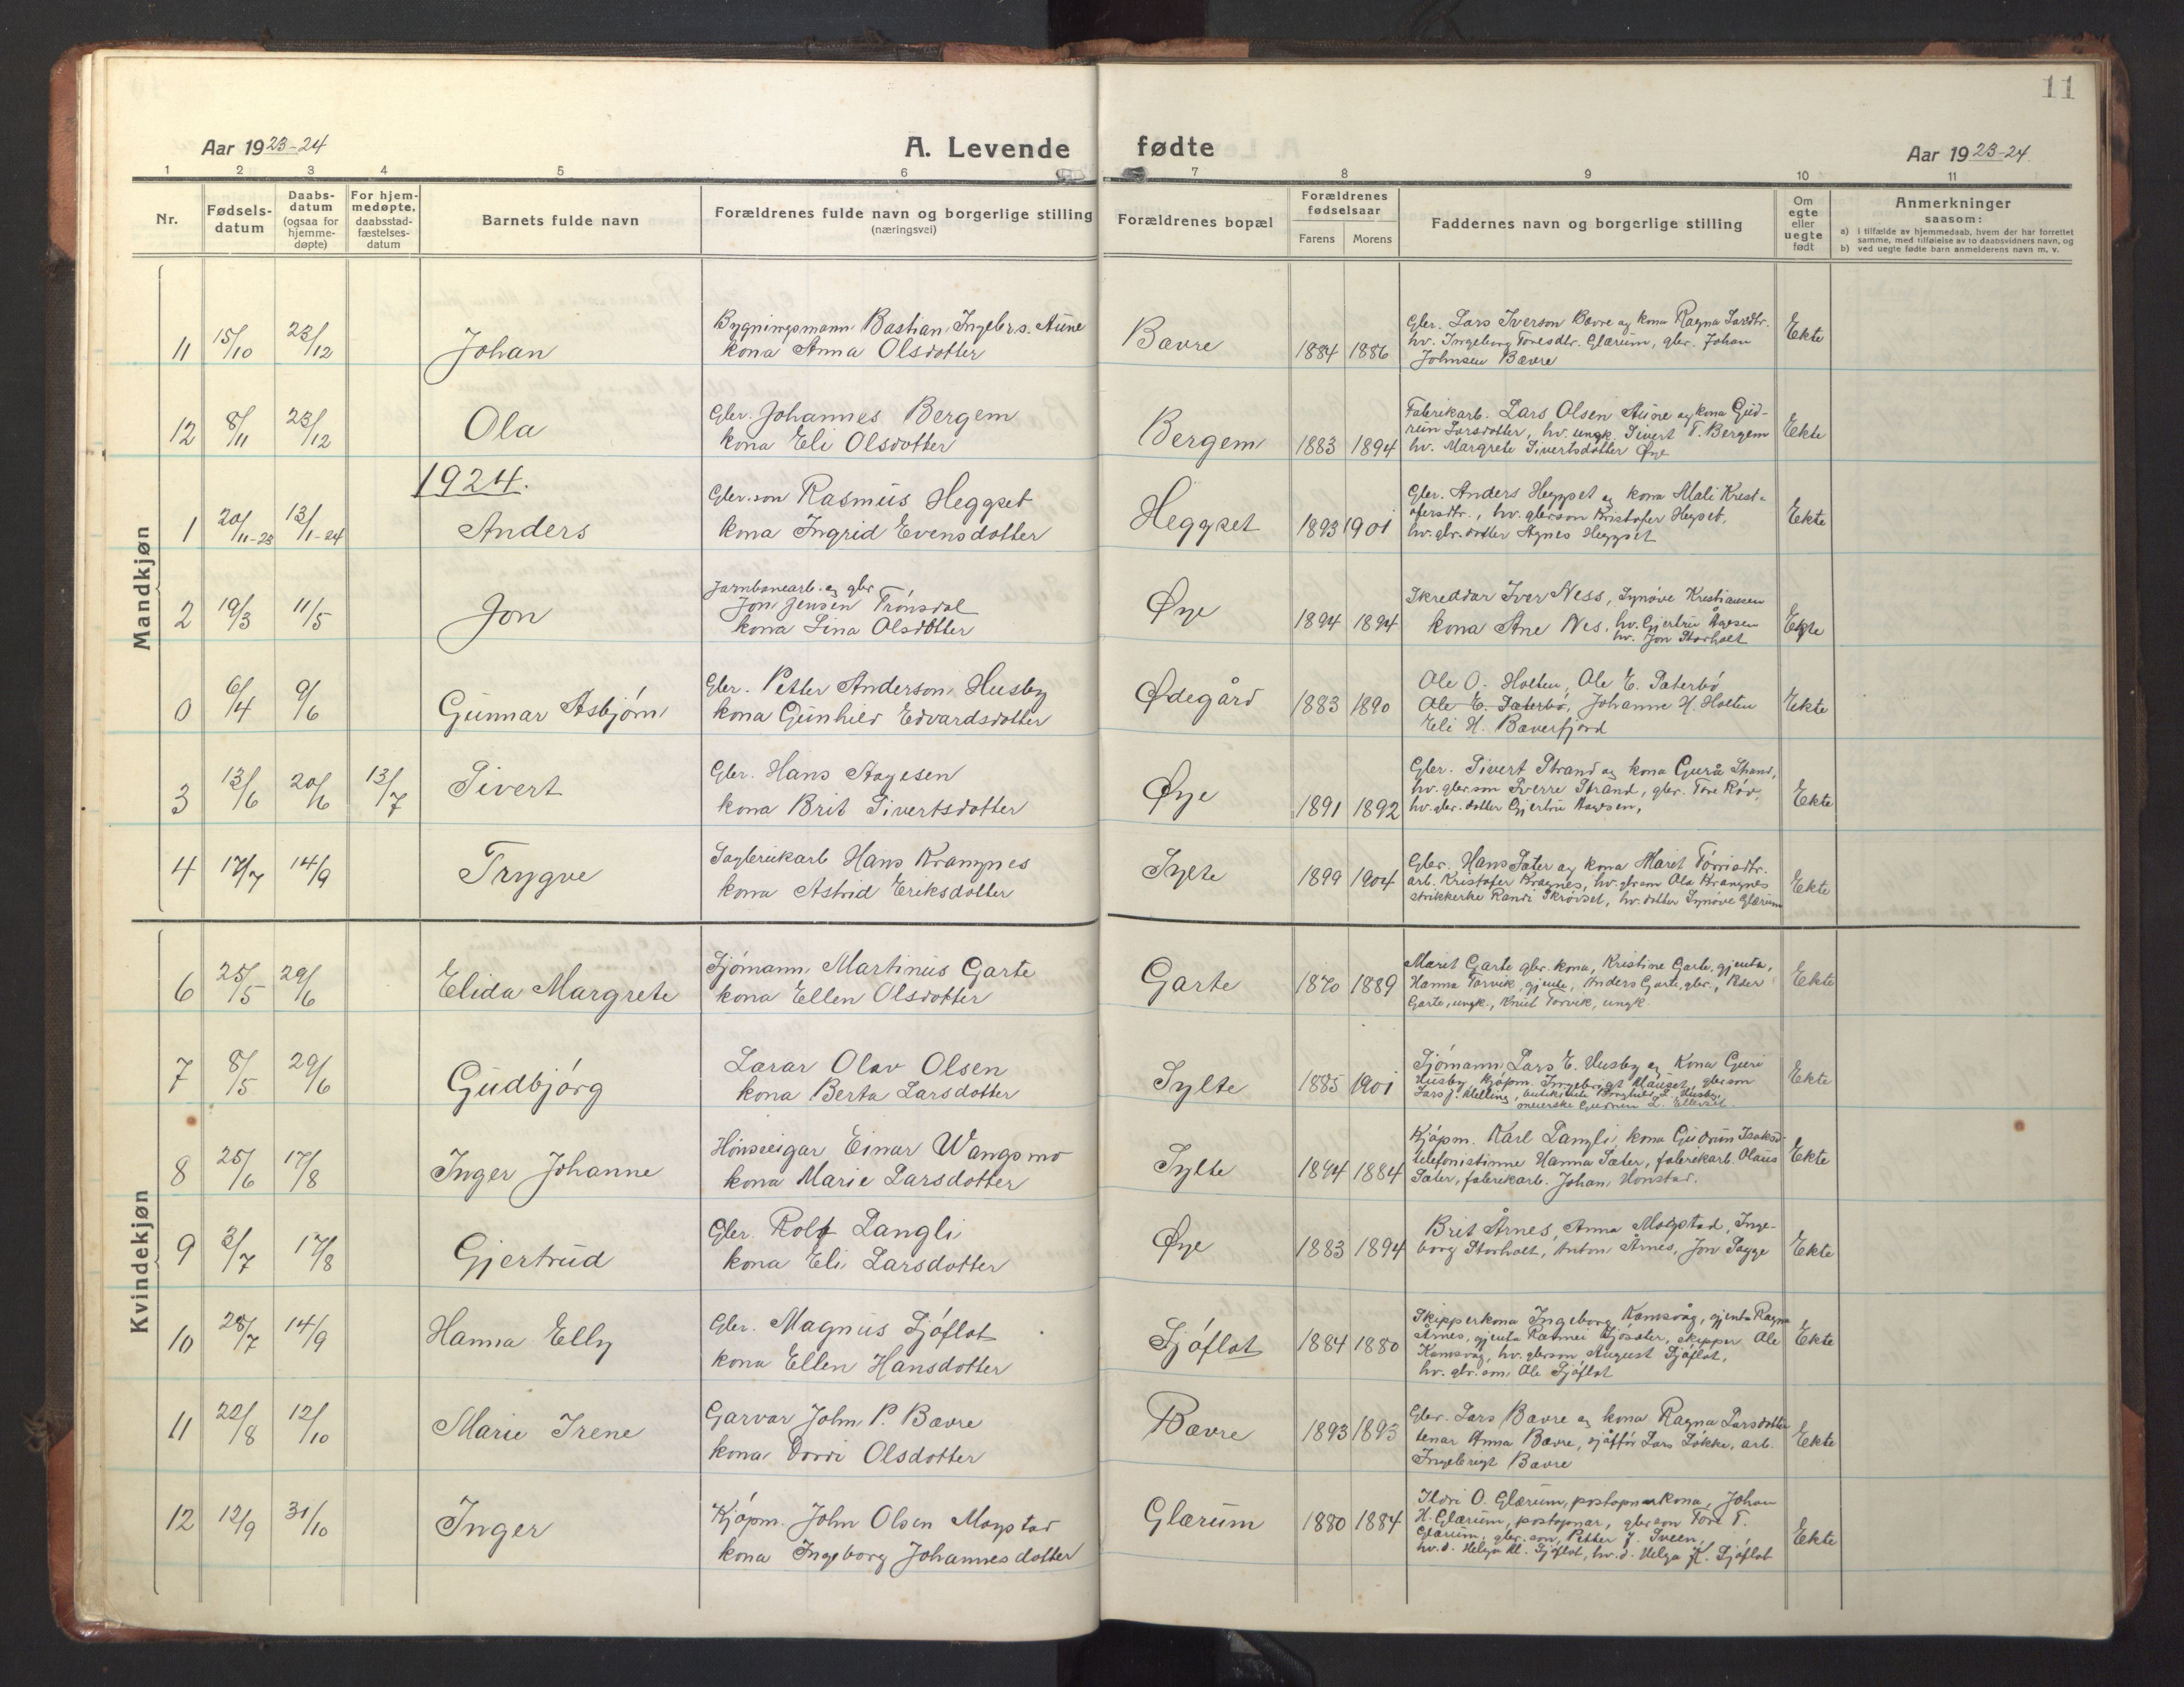 11
Aar 1923-24
A. Levende fødte
Aar 1923-24
1 2 3 4 5 6 7 8 9 10 11
Nr.
Fødsels-
datum
Daabs-
datum
(ogsaa for
hjemme-
døpte)
For hjem-
medøpte,
daabsstad-
fæstelses-
datum
Barnets fulde navn
Forældrenes fulde navn og borgerlige stilling
(næringsvei)
Forældrenes bopæl
Forældrenes
fødselsaar
Farens Morens
Faddernes navn og borgerlige stilling
Om
egte
eller
uegte
født
Anmerkninger
saasom:
a) i tilfælde av hjemmedaab, hvem der har forrettet
samme, med tilføielse av to daabsvidners navn, og
b) ved uegte fødte barn anmelderens navn m. v.
Mandkjøn
11 15/10 23/12 Johan
Bygningsmann Bastian Ingebr.s. Aune
kona Anna Olsdotter
Bævre 1884 1886
Gbr. Lars Iverson Bævre og kona Ragna Larsdtr.
hv. Ingeborg Toresdtr. Glærum, gbr. Johan
Johnsen Bævre
Ekte
12 8/11 23/12 Ola
Gbr. Johannes Bergem
kona Eli Olsdotter
Bergem 1883 1894
Fabrikarb. Lars Olsen Aune og kona Gud-
run Larsdotter, hv. ungk. Sivert T. Bergem
hv. Margrete Sivertsdotter Øye
Ekte
1924.
1 20/11-23 13/1-24 Anders
Gbr.son Rasmus Heggset
kona Ingrid Evensdotter
Heggset 1893 1901
Gbr. Anders Heggset og kona Mali Krist-
ofersdtr., hv. gbrson Kristofer Hegset,
hv. gbr. dotter Agnes Heggset
Ekte
2 19/3 11/5 Jon
Jarnbanearb. og gbr
Jon Jensen Trønsdal
kona Lina Olsdotter
Øye 1894 1894
Skreddar Iver Ness, Synøve Kristiansen
kona Ane Nes, hv. Gjertru Ågesen
hv. Jon Storholt
Ekte
0 6/4 9/6 Gunnar Asbjørn
Gbr. Petter Anderson Husby
kona Gunhild Edvardsdotter
Ødegård 1883 1890
Ole O. Holten, Ole E. Sæterbø
Ole E. Sæterbø, Johanne H. Holten
Eli H. Bæverfjord
Ekte
3 13/6 20/6 13/7 Sivert
Gbr. Hans Aagesen
kona Brit Sivertsdotter
Øye 1891 1892
Gbr. Sivert Strand og kona Gurå Strand,
hv. gbr.son Sverre Strand, gbr. Tore Røv,
hv. gbr. dotter Gjertru Aagesen,
Ekte
4 17/7 14/9 Trygve
Sagbrukarb Hans Krangnes
kona Astrid Eriksdotter
Sylte 1899 1904
Gbr. Hans Sæter og kona Marit Tørrisdtr.
arb. Kristofer Kragnes, hv. gbr.son Ola Krangnes
strikkerke Randi Skrøvset, hv. dotter Synøve Glærum
Ekte
Kvindekjøn
6 25/5 29/6 Elida Margrete
Sjømann Martinus Garte
kona Ellen Olsdotter
Garte 1870 1889
Marit Garte gbr. kona, Kristine Garte, gjenta,
Hanna Torvik, gjente, Anders Garte, gbr., Peder
Garte, ungk., Knut Torvik, ungk.
Ekte
7 8/5 29/6 Gudbjørg
Lærar Olav Olsen
kona Berta Larsdotter
Sylte 1885 1901
Sjømann Lars E. Husby og kona Guri
Husby, kjøpm. Ingebrigt Mauset, gbrson
Lars J. Melling, Husby,
Gudrun L. Ellevset.
Ekte
8 25/6 17/8 Inger Johanne
Hønseeigar Einar Wangsmo
kona Marie Larsdotter
Sylte 1894 1884
Kjøpm. Karl Langli, kona Gudrun Isaksd.
telefonistinne Hanna Sæter, fabrikarb. Olaus
Sæter, fabrikarb. Johan Honstad.
Ekte
9 3/7 17/8 Gjertrud
Gbr. Rolf Langli
kona Eli Larsdotter
Øye 1883 1894
Brit Årnes, Anna Mogstad, Inge-
borg Storholt, Anton Årnes, Jon Sagge
Ekte
10 28/7 14/9 Hanna Elly
Gbr. Magnus Sjøflot
kona Ellen Hansdotter
Sjøflot 1884 1880
Skipperkona Ingeborg Kamsvåg, gjenta Ragna
Årnes, gjenta Rannei Sjøsæter, skipper Ole
Kamsvåg, hv. gbrson August Sjøflot,
hv. gbr. son Ole Sjøflot
Ekte
11 22/8 12/10 Marie Irene
Garvar John P. Bævre
kona Dordi Olsdotter
Bævre 1893 1893
Gbr. Lars Bævre og kona Ragna Larsdotter
tenar Anna Bævre, sjåffør Lars Løkke, arb.
Ingebrigt Bævre
Ekte
12 12/9 31/10 Inger
Kjøpm. John Olsen Mogstad
kona Ingeborg Johannesdotter
Glærum 1880 1884
Ildri O. Glærum, postopnarkona, Johan
H. Glærum, postopnar, gbrson Tore T.
Glærum, gbr. son, Petter J. Sveen,
hv. d. Helga M. Sjøflot, hv. d. Helga K. Sjøflot
Ekte